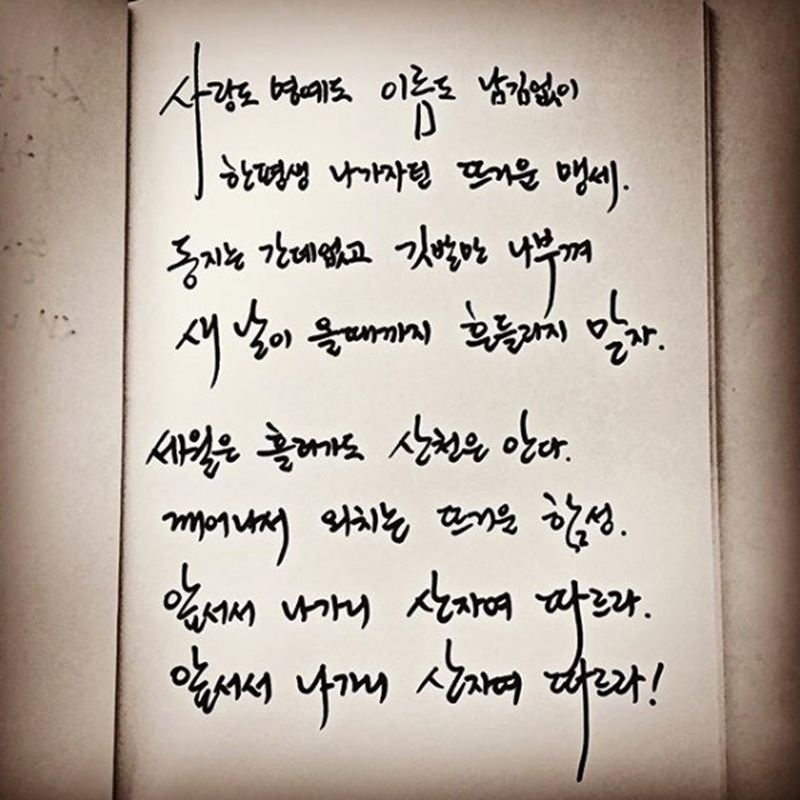 사랑도 명예도 이름도 남김없이
한평생 나가자던 뜨거운 맹세.
동지는 간데없고 깃발만 나부껴
새 날이 올때까지 흔들리지 말자.
세월은 흘러가도 산천은 안다.
깨어나서 외치는 뜨거운 함성.
앞서서 나가니 산자여 따르라.
앞서서 나가니 산자여 따르라!